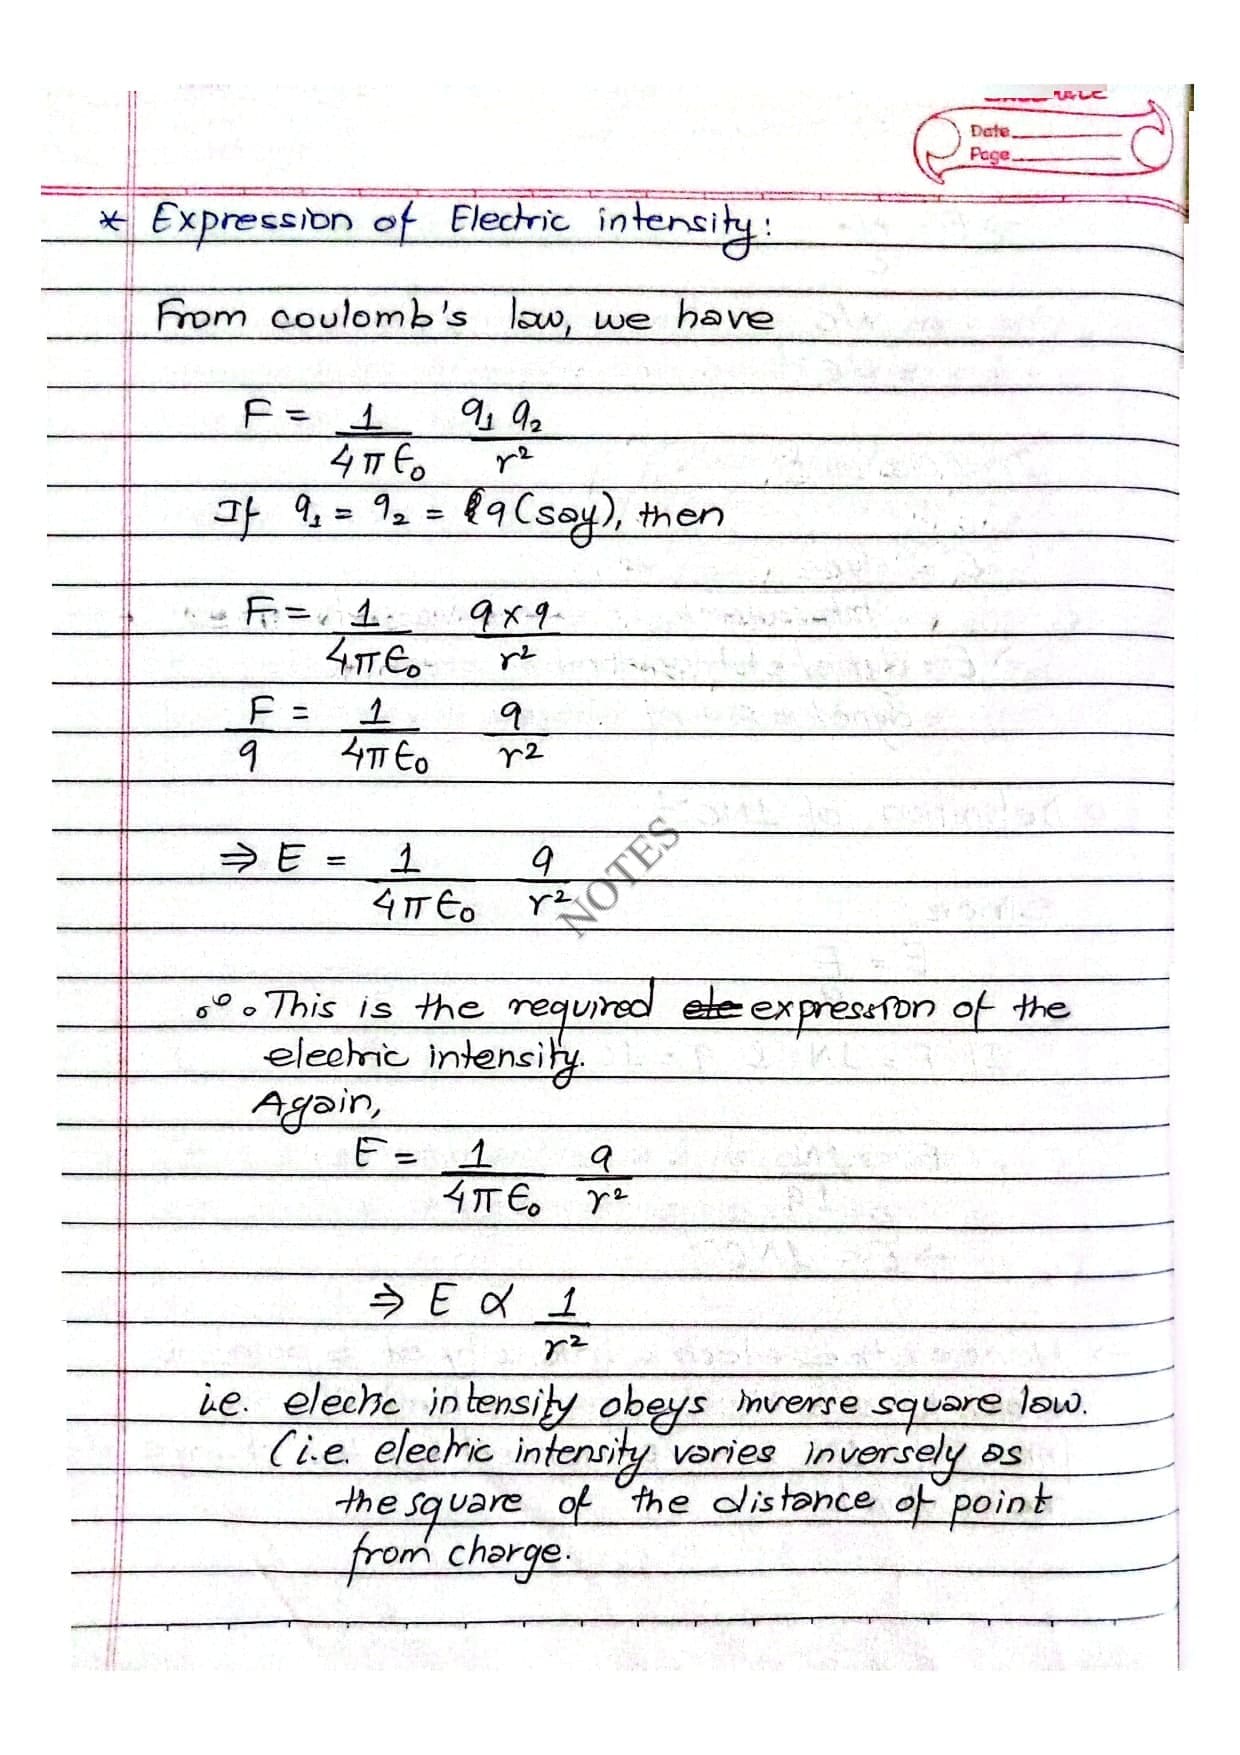 Date
Page
* Expression of Electric intensity:
From coulomb's law, we have
F = 1/4πϵ₀ q₁ q₂/r²
If q₁ = q₂ = q (say), then
F = 1/4πϵ₀ q×q/r²
F/q = 1/4πϵ₀ q/r²
⇒ E = 1/4πϵ₀ q/r²
NOTES
∴ This is the required ele expression of the
electric intensity.
Again,
E = 1/4πϵ₀ q/r²
⇒ E ∝ 1/r²
i.e. electric intensity obeys inverse square law.
(i.e. electric intensity varies inversely as
the square of the distance of point
from charge.